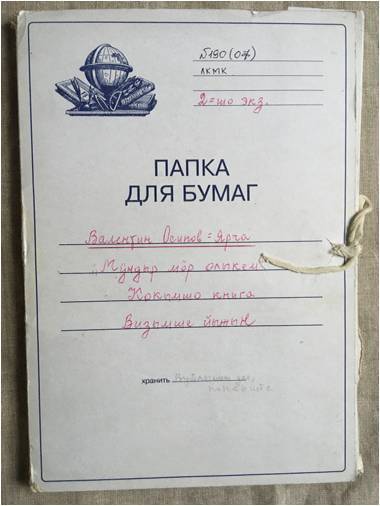 №190(оф)
ЛКМК
2=шо экз.
ПАПКА
ДЛЯ БУМАГ
Валентин Осипов=Ярча
Мӱндыр мӧр олыкем
Кокымшо книга
Визымше йыжыҥ
хранить